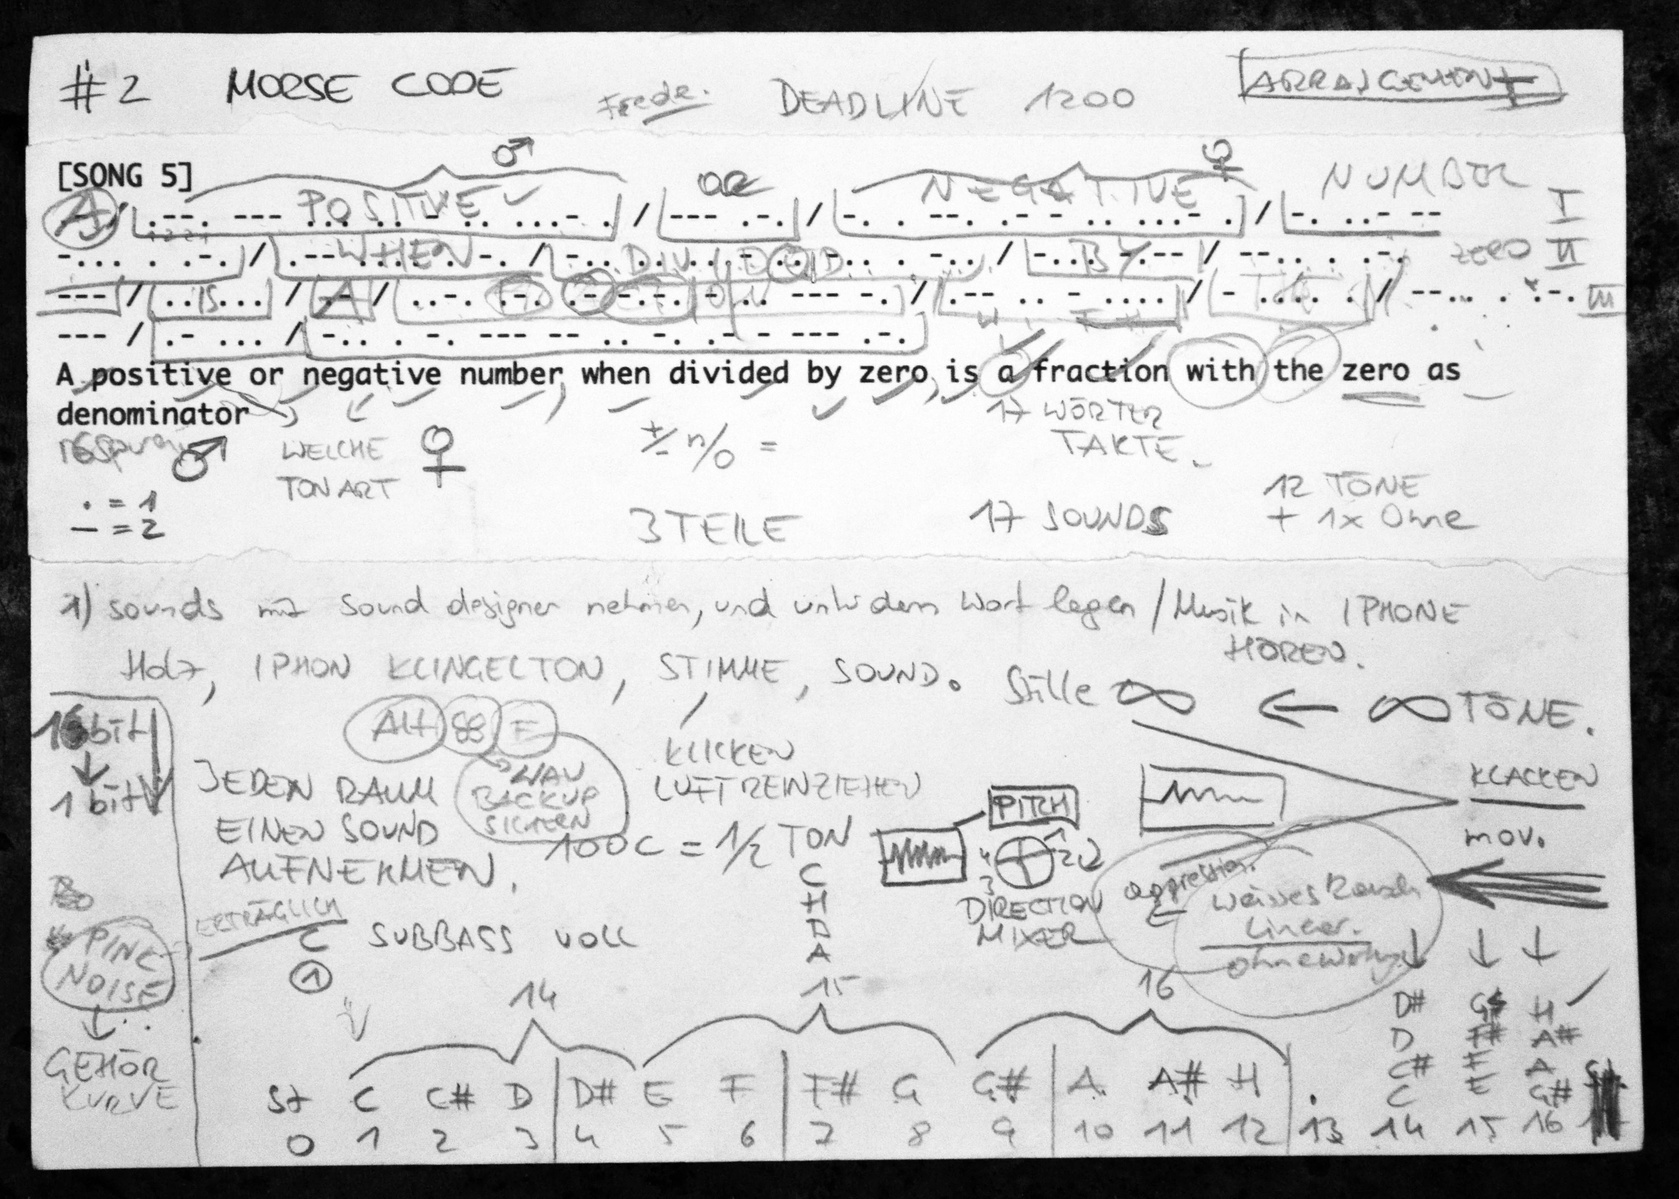 #2 MORSE CODE Frede. DEADLINE 1200 ARRANGEMENT
♂ ♀
[SONG 5] POSITIVE OR NEGATIVE NUMBER I
A / .--. --- ... .. - .. ...- . / --- .-. / -. . --. .- - .. ...- . / -. ..- --
WHEN DIVIDED BY ZERO II
-... . .-. / .-- .... . -. / -.. .. ...- .. -.. . -.. / -... -.-- / --.. . .-.
IS A WITH THE III
--- / .. ... / .- / ..-. .-. .- -.-. - .. --- -. / .-- .. - .... / - .... . / --.. . .-.
--- / .- ... / -.. . -. --- -- .. -. .- - --- .-.
A positive or negative number, when divided by zero, is a fraction with the zero as
denominator
♂ WELCHE ♀ ± n/0 = 17 WÖRTER
TONART TAKTE.
. = 1 12 TÖNE
— = 2 3 TEILE 17 SOUNDS + 1x Ohne
1) sounds mit Sound designer nehmen, und unter dem Wort legen / Musik in IPHONE
HÖREN.
Holz, IPHON KLINGELTON, STIMME, SOUND. Stille ∞ ← ∞ TÖNE.
16bit
↓
1 bit
Alt 88 F
KLICKEN
LUFTREINZIEHEN
WAV
BACKUP
SICHERN
JEDEN RAUM
EINEN SOUND
AUFNEHMEN.
100C = 1/2 TON
C
H
D
A
PITCH
4 1 2
3
DIRECTION
MIXER
KLACKEN
mov.
aggression.
weisses Rausch
Linear.
ERTRÄGLICH
C SUBBASS VOLL
1
PINK
NOISE
↓
GEHÖR
KURVE
14 15 16
St C C# D D# E F F# G G# A A# H
0 1 2 3 4 5 6 7 8 9 10 11 12 13 14 15 16
D# G# H
D F# A#
C# F A
C E G#